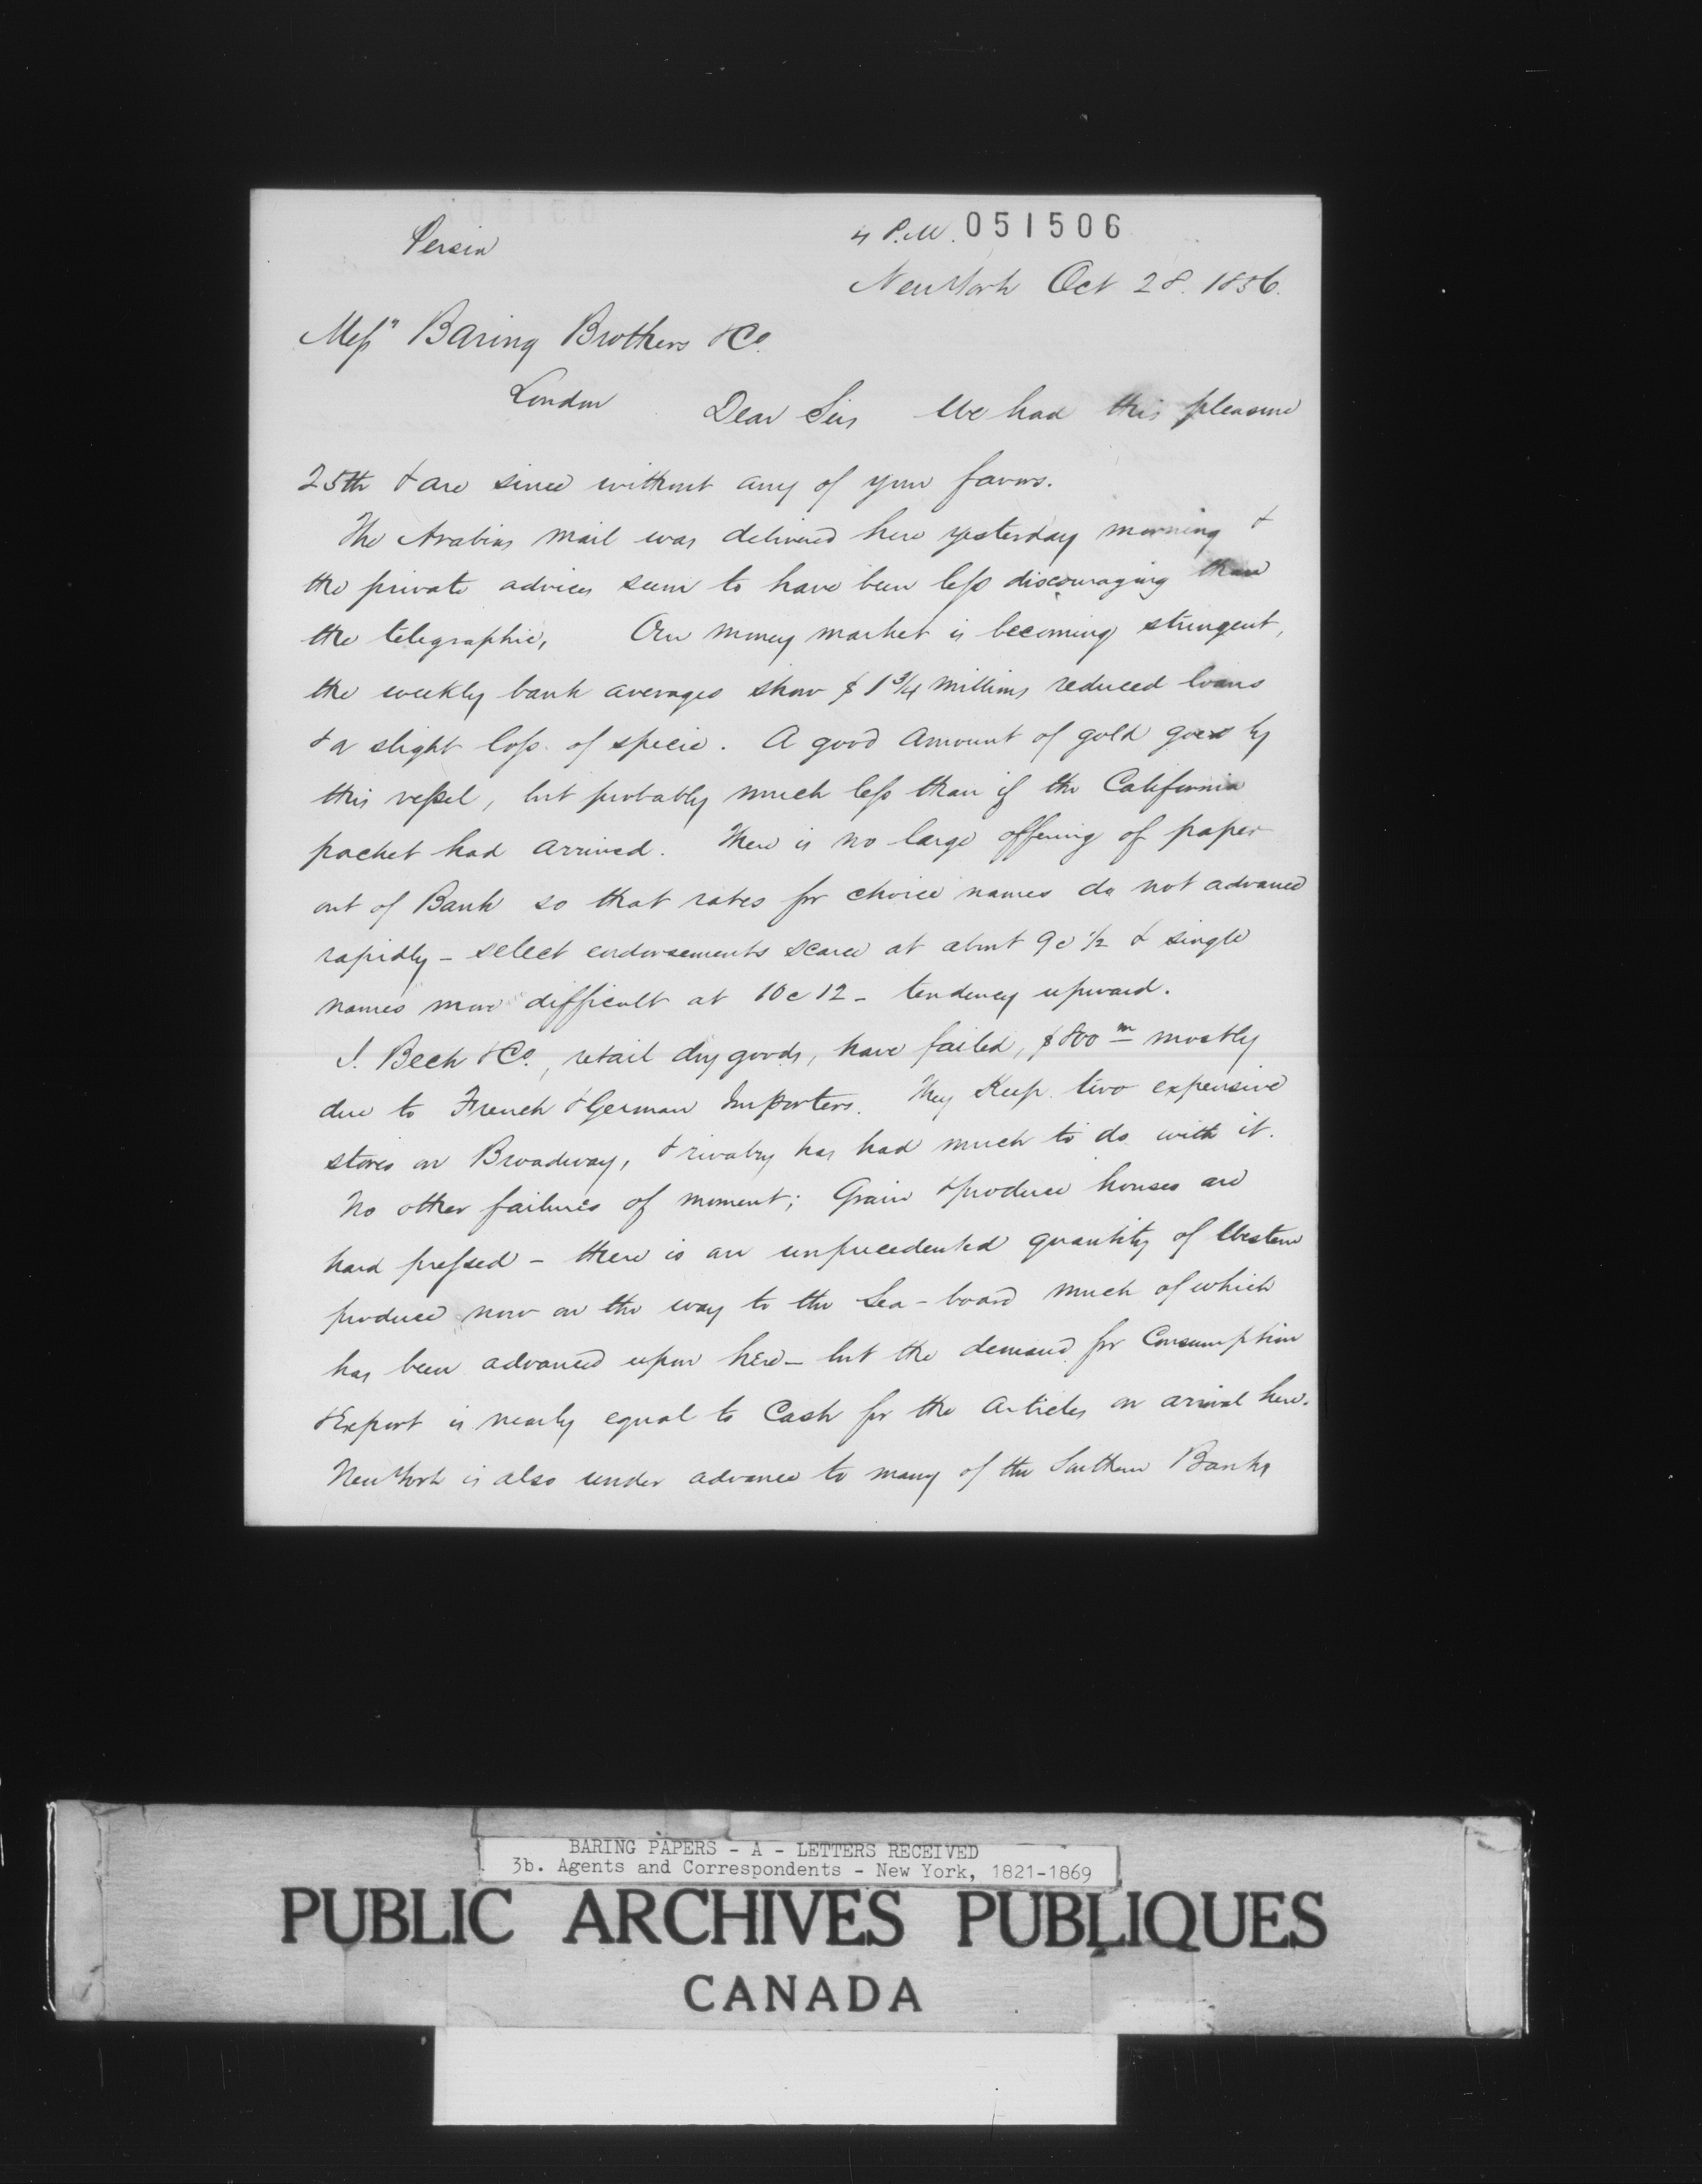 Persia
4 P.M. 051506
New York Oct 28. 1856.
Messrs Baring Brothers & Co.
London Dear Sirs We had this pleasure
25th & are since without any of your favors.
The Arabias mail was delivered here yesterday morning &
the private advices seem to have been less discouraging than
the telegraphic. Our money market is becoming stringent,
the weekly bank averages show $ 1 3/4 millions reduced loans
& a slight loss of specie. A good amount of gold goes by
this vessel, but probably much less than if the California
packet had arrived. There is no large offering of paper
out of Bank so that rates for choice names do not advance
rapidly - select endorsements scarce at about 9 @ 1/2 & single
names more difficult at 10 @ 12 - tendency upward.
J. Beck & Co., retail dry goods, have failed, $800 m mostly
due to French & German Importers. They Keep two expensive
stores on Broadway, & rivalry has had much to do with it.
No other failures of moment; Grain & produce houses are
hard pressed - there is an unprecedented quantity of Western
produce now on the way to the Sea-board much of which
has been advanced upon here - but the demand for Consumption
& Export is nearly equal to Cash for the Articles on arrival here.
New York is also under advance to many of the Southern Banks
BARING PAPERS - A - LETTERS RECEIVED
3b. Agents and Correspondents - New York, 1821-1869
PUBLIC ARCHIVES PUBLIQUES
CANADA